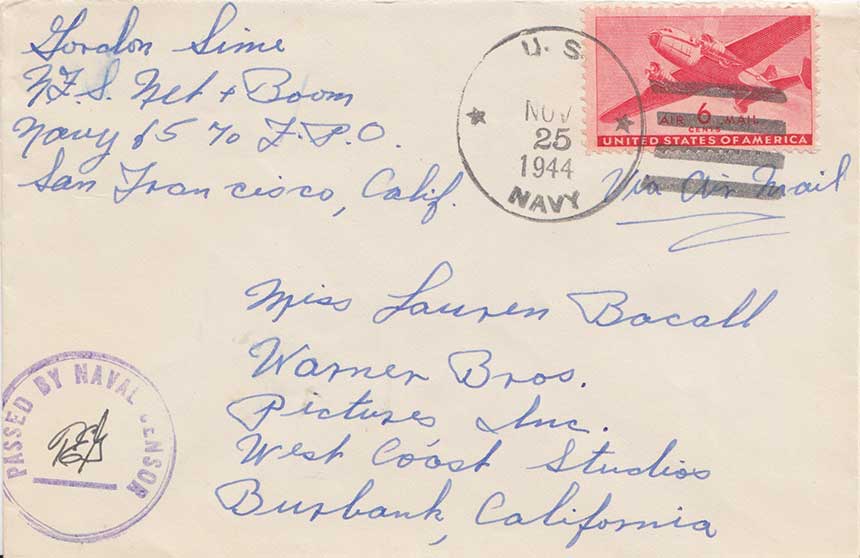 Gordon Sime
N.F.S. Net + Boom
Navy 65 % F.P.O.
San Francisco, Calif.
U. S.
NOV
25
1944
NAVY
AIR 6 MAIL
CENTS
UNITED STATES OF AMERICA
Via Air Mail
Miss Lauren Bacall
Warner Bros.
Pictures Inc.
West Coast Studios
Burbank, California
PASSED BY NAVAL CENSOR